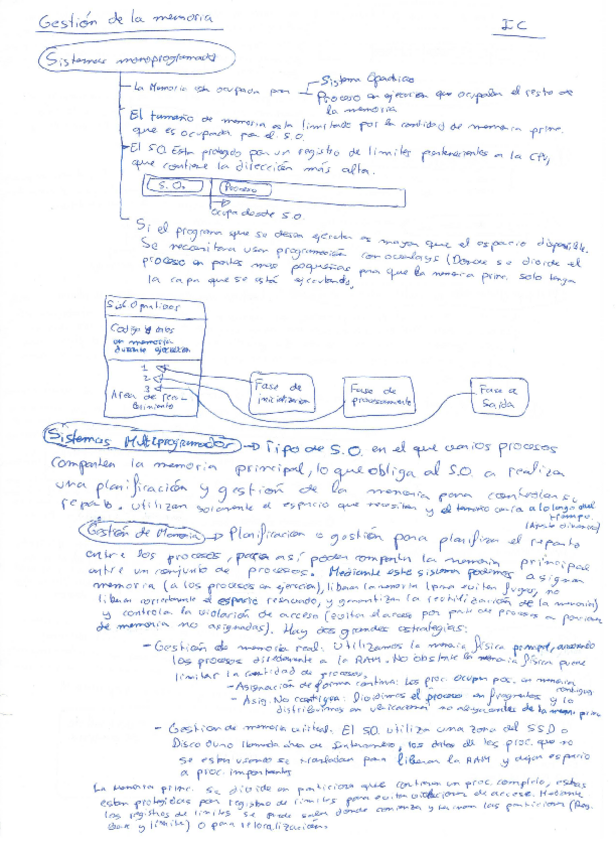 Gestión de la memoria
IC
Sistemas monoprogramados
La Memoria está ocupada por
Sistema Operativo
Proceso en ejecución que ocupaba el resto de
la memoria
El tamaño de memoria esta limitado por la cantidad de memoria princ.
que es ocupada por el S.O.
El S.O. Esta protegido por un registro de limites pertenecientes a la CPU,
que contiene la dirección más alta.
S.O. Proceso
Ocupa desde S.O.
Si el programa que se desea ejecutar es mayor que el espacio disponible.
Se necesitara usar programación con overlays (Donde se divide el
proceso en partes mas pequeñas para que la memoria princ. solo tenga
la capa que se está ejecutando.
Sist Operativo
Codigo y datos
en memoria
durante ejecución
1
2
3
Area de
Fase de
inicialización
Fase de
procesamiento
Fase de
Salida
Sistemas Multiprogramados → Tipo de S.O. en el que varios procesos
comparten la memoria principal, lo que obliga al S.O. a realizar
una planificación y gestión de la memoria para controlar su
reparto. Utilizan solamente el espacio que necesitan y el tamaño varía a lo largo del
tiempo.
Gestión de Memoria → Planificación o gestión para planificar el reparto
entre los procesos, para así poder compartir la memoria principal
entre un conjunto de procesos. Mediante este sistema podemos asignar
memoria (a los procesos en ejecución), liberar la memoria (para evitar fugas, no
liberar correctamente el espacio reservado, y garantizar la reutilización de la memoria)
y controla la violación de acceso (evitar el acceso por parte de procesos a porciones
de memoria no asignadas). Hay dos grandes estrategias:
- Gestión de memoria real: Utilizamos la memoria física principal,
los procesos directamente a la RAM. No obstante la memoria física puede
limitar la cantidad de procesos.
- Asignación de forma continua: Los proc. ocupan pos. en memoria
contiguas
- Asig. No contigua: Dividimos el proceso en fragmentos y lo
distribuimos en ubicaciones no adyacentes de la mem. princ
- Gestion de memoria virtual. El S.O. utiliza una zona del SSD o
Disco Duro llamada área de intercambio, los datos de los proc. que no
se esten usando se trasladan para liberar la RAM y dejar espacio
a proc. importantes
La Memoria princ. se divide en particiones que contienen un proc. completo, estas
estan protegidas por registro de limites para evitar violaciones de acceso. Mediante
los registros de limites se puede saber donde comienza y termina las particiones (Reg.
Base y límite) o para relocalización.